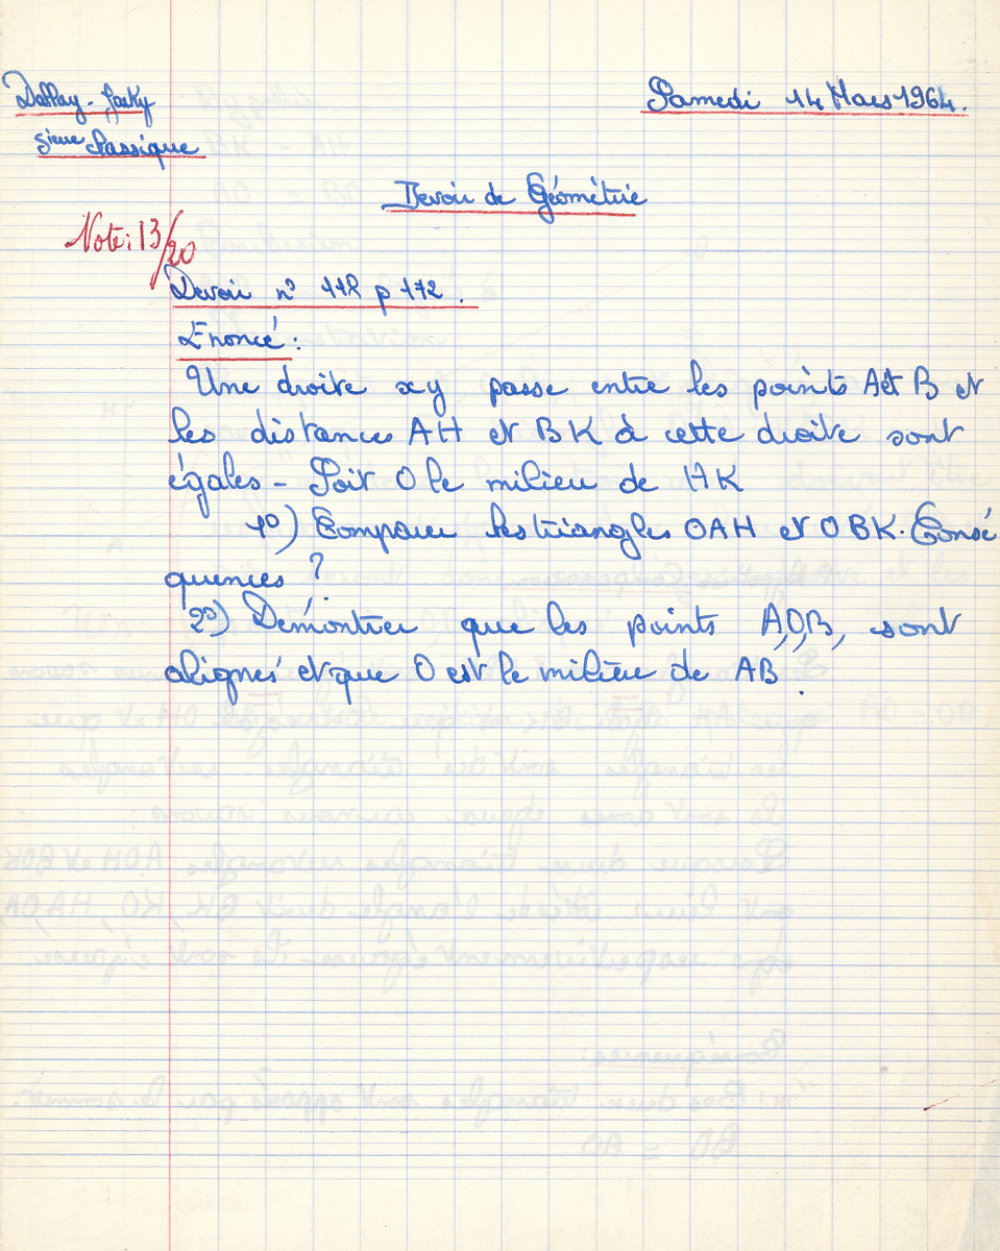 Dallay - Jacky
Samedi 14 Mars 1964.
5ième Classique
Devoir de Géométrie
Note: 13/20
Devoir n° 118 p 172.
Enoncé:
Une droite xy passe entre les points A et B et
les distances AH et BK à cette droite sont
égales - Soit O le milieu de HK
1°) Comparer les triangles OAH et OBK. Consé
quences ?
2°) Démontrer que les points A,O,B, sont
alignés et que O est le milieu de AB.